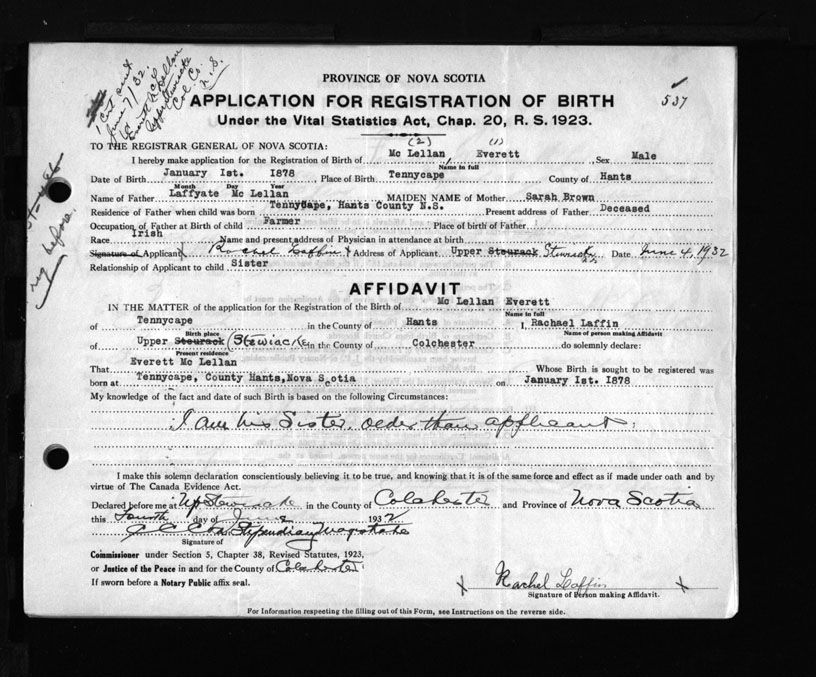 1 Cert sent
June 7/32.
to
Everett McLellan
Upper Stewiacke
Col. Co.
N.S.
PROVINCE OF NOVA SCOTIA
537
APPLICATION FOR REGISTRATION OF BIRTH
Under the Vital Statistics Act, Chap. 20, R. S. 1923.
TO THE REGISTRAR GENERAL OF NOVA SCOTIA:
(2) (1)
I hereby make application for the Registration of Birth of Mc Lellan, Everett Sex Male
Name in full
Date of Birth January 1st. 1878 Place of Birth Tennycape County of Hants
Month Day Year
Name of Father Laffyate Mc Lellan MAIDEN NAME of Mother Sarah Brown
Residence of Father when child was born Tennycape, Hants County N.S. Present address of Father Deceased
Occupation of Father at Birth of child Farmer Place of birth of Father
Race Irish Name and present address of Physician in attendance at birth
Signature of Applicant X Rachel Laffin X Address of Applicant Upper Steurack Stewiacke N.S. Date June 4, 1932
Relationship of Applicant to child Sister
before.
AFFIDAVIT
IN THE MATTER of the application for the Registration of the Birth of Mc Lellan Everett
Name in full
of Tennycape in the County of Hants I, Rachael Laffin
Birth place Name of person making Affidavit
of Upper Steurack (Stewiacke in the County of Colchester do solemnly declare:
Present residence
That Everett Mc Lellan Whose Birth is sought to be registered was
born at Tennycape, County Hants, Nova Scotia on January 1st. 1878
My knowledge of the fact and date of such Birth is based on the following Circumstances:
I am his Sister older than applicant.
I make this solemn declaration conscientiously believing it to be true, and knowing that it is of the same force and effect as if made under oath and by
virtue of The Canada Evidence Act.
Declared before me at Up Stewiacke in the County of Colchester and Province of Nova Scotia
this Fourth day of June 1932
C C Cox Stipendiary Magistrate
Signature of
Commissioner under Section 5, Chapter 38, Revised Statutes, 1923,
or Justice of the Peace in and for the County of Colchester
If sworn before a Notary Public affix seal.
X Rachel Laffin X
Signature of Person making Affidavit.
For Information respecting the filling out of this Form, see Instructions on the reverse side.